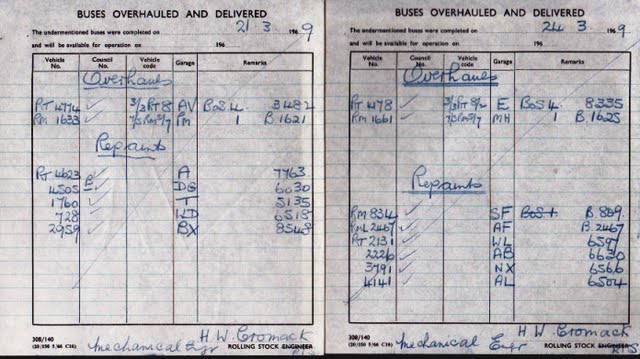 BUSES OVERHAULED AND DELIVERED
The undermentioned buses were completed on 21 3 1969
and will be available for operation on 196
Vehicle No. Council No. Vehicle code Garage Remarks
Overhauls
RT 4774 ✓ 3/3RT8 AV BoS4. 3482
RM 1633 ✓ 7/5RM5/7 PM 1 B 1621
Repaints
RT 4623 ✓ A 7763
4505 B DG 6030
1760 ✓ T 5135
728 ✓ WD 6518
2959 ✓ BX 8548
308/140
H W Cromack
Mechanical Engr ROLLING STOCK ENGINEER
BUSES OVERHAULED AND DELIVERED
The undermentioned buses were completed on 24 3 1969
and will be available for operation on 196
Vehicle No. Council No. Vehicle code Garage Remarks
Overhauls
RT 478 ✓ 3/3RT8/2 E BoS4. 8335
RM 1661 ✓ 7/5RM5/7 MH 1 B 1625
Repaints
RM 834 ✓ SF BoS1. B 809
RML 2467 ✓ AF B 2467
RT 2131 ✓ WL 6597
2226 ✓ AB 6630
3791 ✓ NX 6566
4141 ✓ AL 6504
308/140
H W Cromack
Mechanical Engr ROLLING STOCK ENGINEER